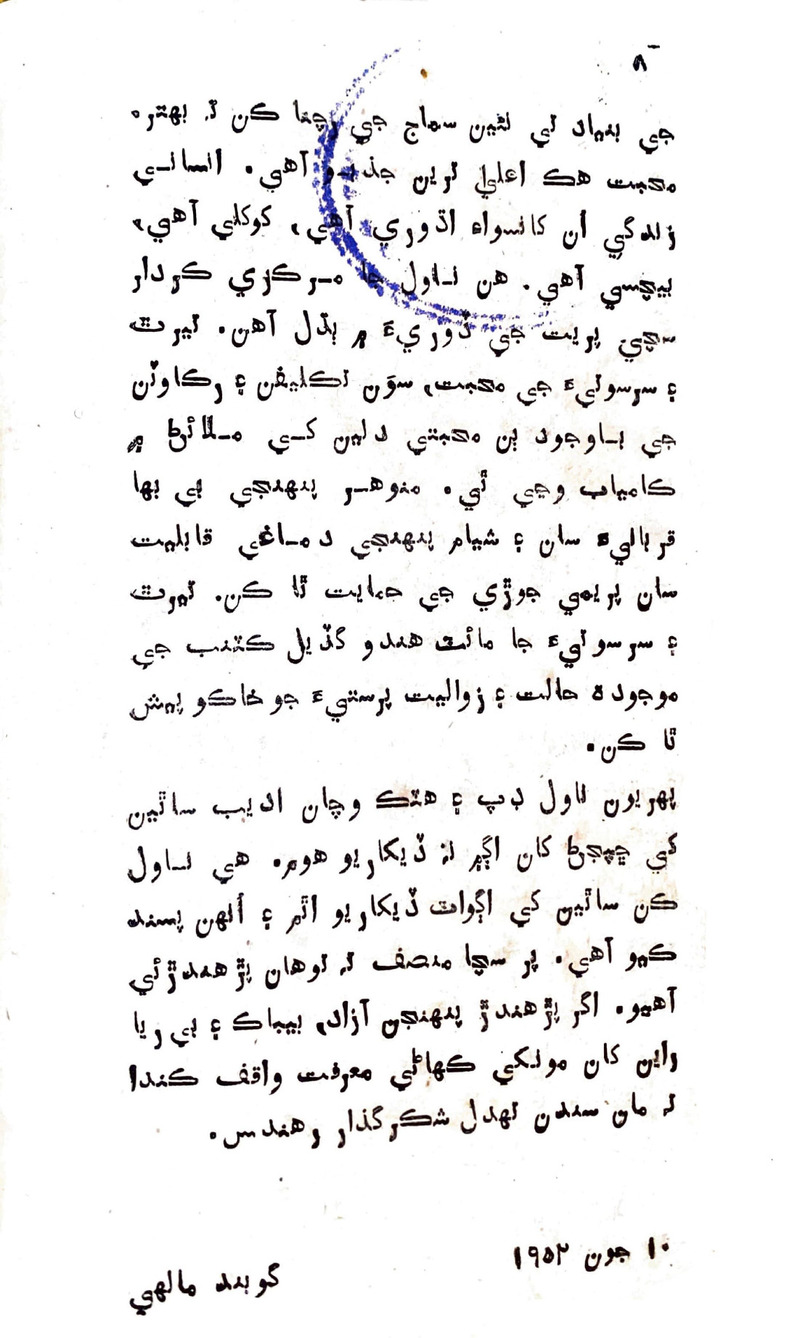 ٨
جي بنياد تي نئين سماج جي رچنا ڪن ته بهتر.
محبت هڪ اعليٰ ترين جذبو آهي. انساني
زندگي ان کانسواءِ اڌوري آهي، کوکلي آهي،
بيچسي آهي. هن ناول جا مرڪزي ڪردار
سچي پريت جي ڏوريءَ ۾ ٻڌل آهن. تيرٿ
۽ سرسوتيءَ جي محبت، سوَن تڪليفن ۽ رڪاوٽن
جي باوجود ٻن محبتي دلين کي ملائڻ ۾
ڪامياب وڃي ٿي. منوهر پنهنجي بي بها
قربانيءَ سان ۽ شيام پنهنجي دماغي قابليت
سان پريمي جوڙي جي حمايت ٿا ڪن. تيرٿ
۽ سرسوتيءَ جا مائٽ هندو گڏيل ڪٽنب جي
موجوده حالت ۽ زواليت پرستيءَ جو خاڪو پيش
ٿا ڪن.
پهريون ناول ڊپ ۽ هٻڪ وچان اديب ساٿين
کي ڇپجڻ کان اڳم نه ڏيکاريو هوم. هي ناول
ڪن ساٿين کي اڳواٽ ڏيکاريو اٿم ۽ اُنهن پسند
ڪيو آهي. پر سچا منصف ته توهان پڙهندڙ ئي
آهيو. اگر پڙهندڙ پنهنجن آزاد، بيباڪ ۽ بي ريا
راين کان مونکي ڪهاڻي معرفت واقف ڪندا
ته مان سندن تهدل شڪرگذار رهندس.
١٠ جون ١٩٥٢
گوبند مالهي